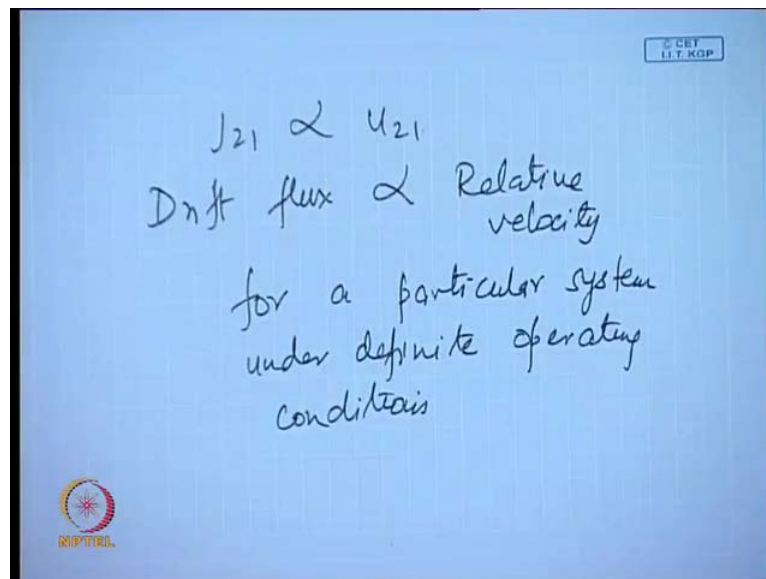 © CET
I.I.T. KGP
J21 ∝ u21
Drift flux ∝ Relative
velocity
for a particular system
under definite operating
conditions
NPTEL